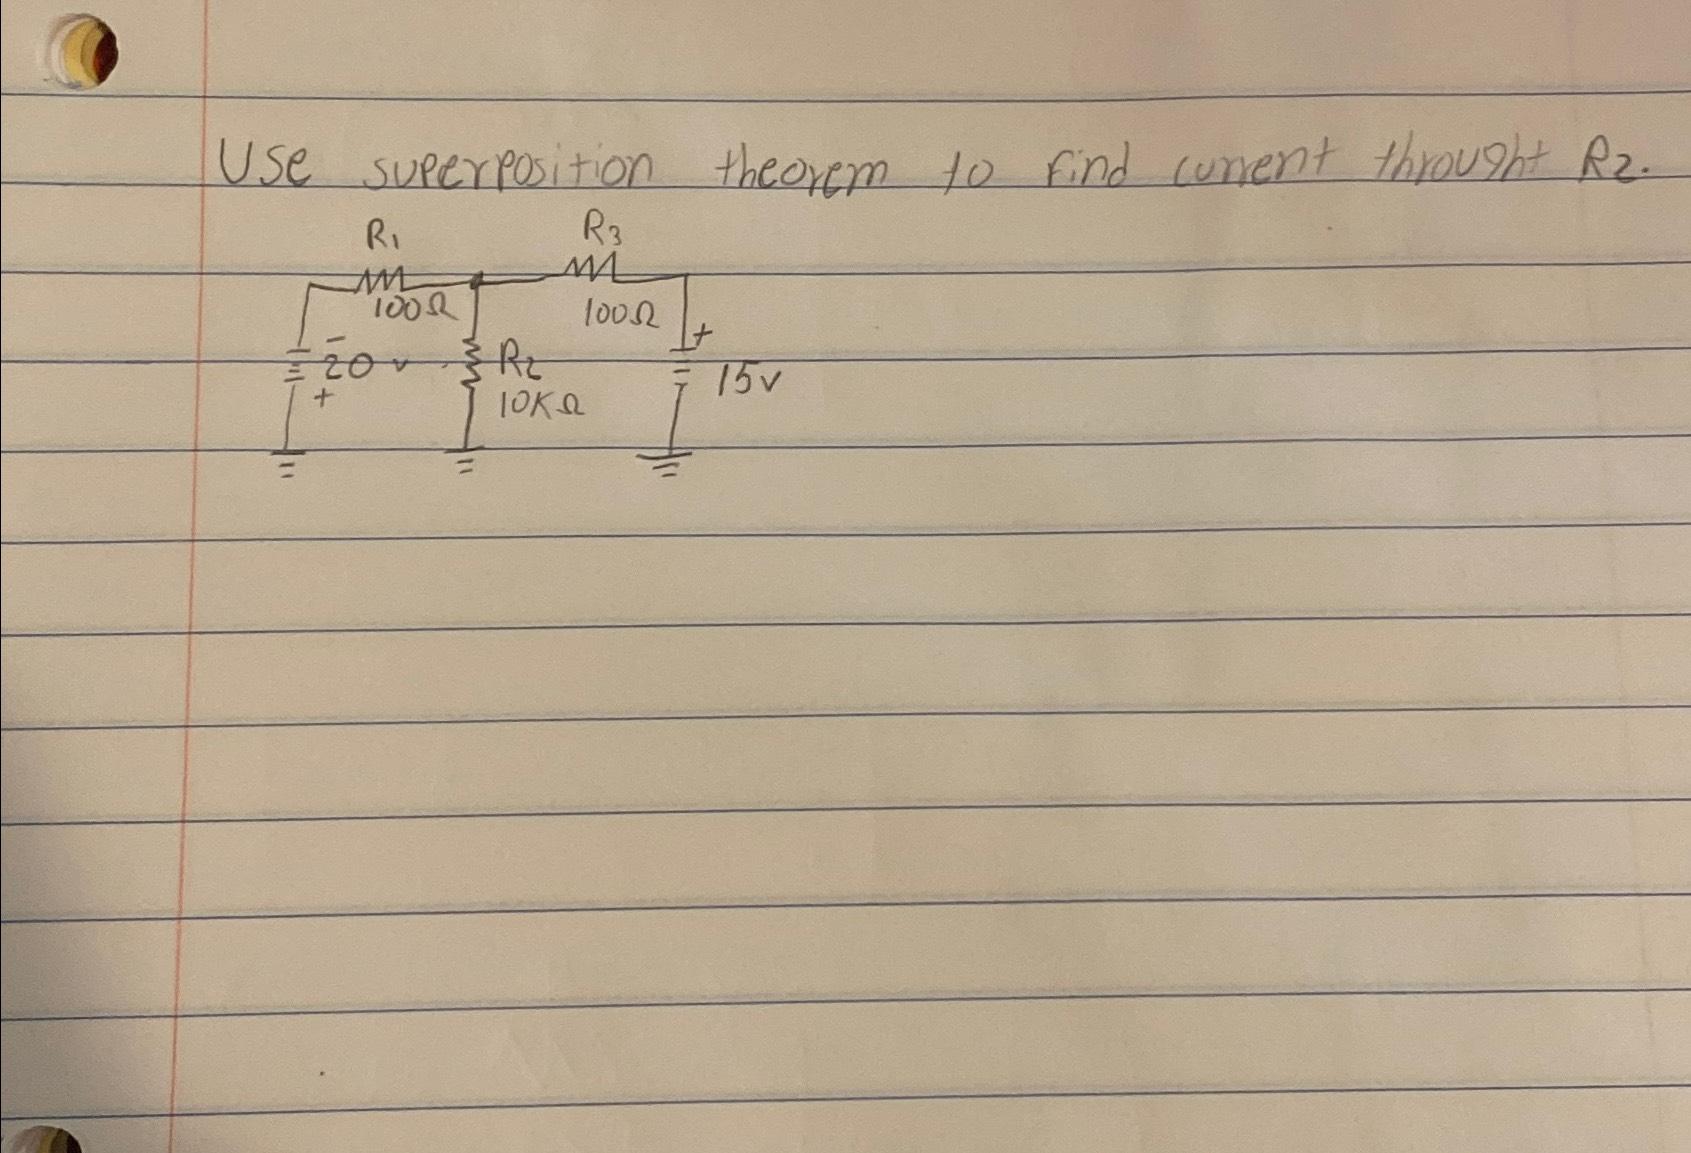 Use superposition theorem to find current throught R2.
R1 R3
100Ω 100Ω
- +
20 v R2 15v
+ 10KΩ